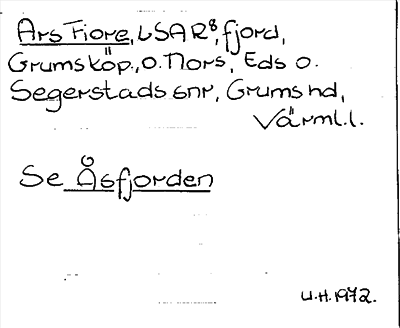 Ars Fiore, LSA R8, fjord,
Grums köp., o. Nors, Eds o.
Segerstads snr, Grums hd,
Värml. l.
Se Åsfjorden
U.H. 1972.